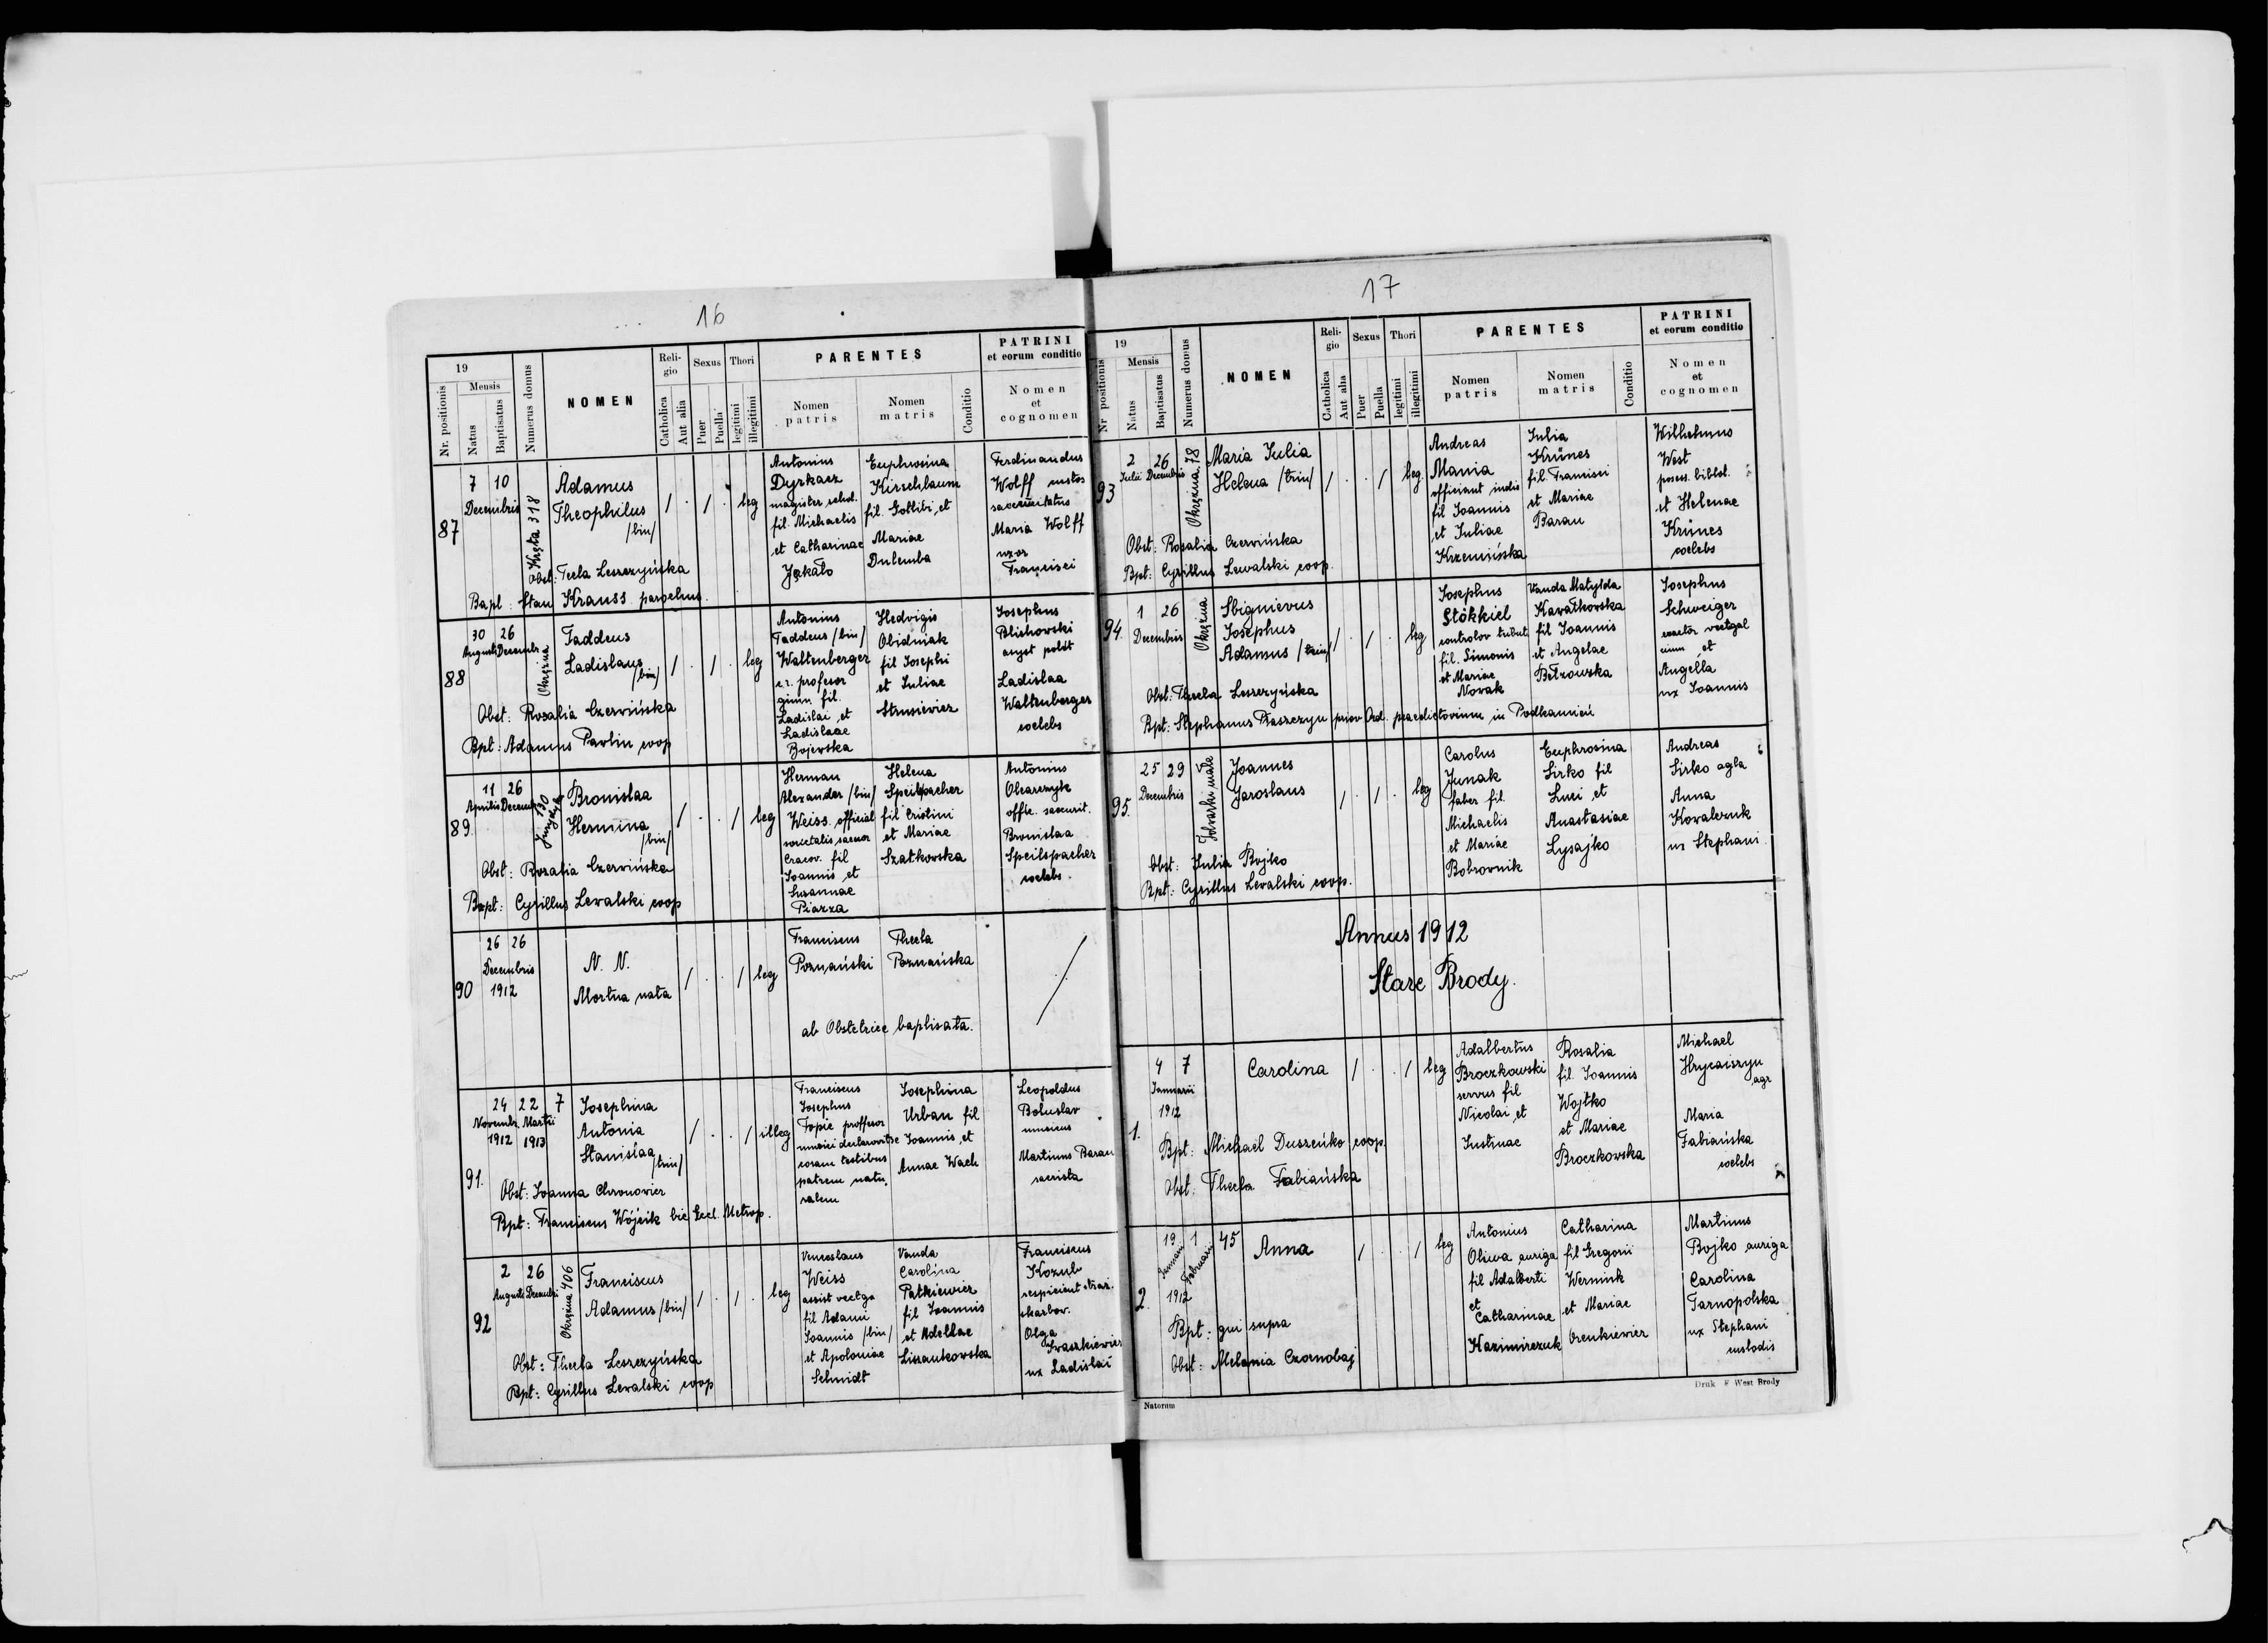 16
19
Nr. positionis
Mensis
Natus
Baptisatus
Numerus domus
NOMEN
Religio
Catholica
Aut alia
Sexus
Puer
Puella
Thori
legitimi
illegitimi
PARENTES
Nomen patris
Nomen matris
Conditio
PATRINI
et eorum conditio
Nomen
et
cognomen
87
7 10
Decembris
Kręta 318
Adamus
Theophilus
/bin/
leg
Antonius
Dyrkacz
magister schol.
fil. Michaelis
et Catharinae
Jękało
Euphrosina
Kirschbaum
fil. Gottlibi, et
Mariae
Dulemba
Ferdinandus
Wolff custos
Maria Wolff
uxor
Francisci
Obst: Tecla Leszczyńska
Bapt: Stan Krauss parochus.
88
30 26
Augusti Decembr
Okrężna
Taddeus
Ladislaus
/bin/
leg
Antonius
Taddeus /bin/
Waltenberger
c.r. profesor
gimn. fil.
Ladislai et
Ladislaae
Bojerska
Hedvigis
Obidniak
fil Josephi
et Juliae
Strusievicz
Josephus
Blishowski
Ladislaa
Waltenberger
coelebs
Obst: Rosalia Czerwińska
Bpt: Adamus Pavlin coop
89.
11 26
Aprilis Decemb
130
Bronislaa
Hermina
/bin/
leg
Herman
Alexander /bin/
Weiss. official
societatis
Cracov. fil
Joannis et
Susannae
Piazza
Helena
Speilspacher
fil Cristini
et Mariae
Szatkowska
Antonius
Bronislaa
Speilspacher
coelebs.
Obst: Rozalia Czerwińska
Bapt: Cyrillus Levalski coop
90
26 26
Decembris
1912
N. N.
Mortua nata
leg
Franciscus
Poznański
Thecla
Poznańska
ab Obstetrice baptisata.
91.
24 22 7
Novembr. Martii
1912 1913
Josephina
Antonia
Stanislaa
/trin/
illeg
Franciscus
Josephus
Topic proffesor
coram testibus
patrem natu
ralem
Josephina
Urban fil
Joannis, et
Annae Wach
Leopoldus
Bohuslav
musicus
Martinus Baran
sacrista
Obst: Joanna Chronovicz
Bpt: Franciscus Wójcik vic Eccl. Metrop.
92
2 26
Augusti Decembr
Okrężna 406
Franciscus
Adamus /bin/
leg
Venceslaus
Weiss
assist vectga
fil Adami
Joannis /bin/
et Apoloniae
Schmidt
Vanda
Carolina
Patkiewicz
fil Joannis
et Adellae
Lissankowska
Franciscus
Kozub
respicient straż.
skarbow.
Olga
Iwaszkiewicz
ux Ladislai
Obst: Thecla Leszczyńska
Bpt: Cyrillus Levalski coop
17
19
Nr positionis
Mensis
Natus
Baptisatus
Numerus domus
NOMEN
Religio
Catholica
Aut alia
Sexus
Puer
Puella
Thori
legitimi
illegitimi
PARENTES
Nomen patris
Nomen matris
Conditio
PATRINI
et eorum conditio
Nomen
et
cognomen
93
2 26
Julii Decembris
Okrężna 78
Maria Julia
Helena /trin/
leg.
Andreas
Mania
officiant indic
fil Joannis
et Juliae
Krzemińska
Julia
Krünes
fil. Francisci
et Mariae
Baran
Wilhelmus
West
posess. bibliot.
et Helenae
Krünes
coelebs
Obst: Rosalia Czervińska
Bpt: Cyrillus Lewalski coop.
94.
1 26
Decembris
Okrężna
Sbignievus
Josephus
Adamus /trin/
leg
Josephus
Stökkiel
controlor tribut.
fil. Simonis
et Mariae
Novak
Vanda Matylda
Kawałkovska
fil Joannis
et Angelae
Betzowska
Josephus
Schweiger
exactor vectgal
et
Angella
ux Joannis
Obst: Thecla Leszczyńska
Bpt: Stephanus Płaszczyn prior Ord. praedicatorium in Podkamień
95.
25 29
Decembris
Folwarki małe
Joannes
Jaroslaus
leg
Carolus
Junak
faber fil.
Michaelis
et Mariae
Bobrovnik
Euphrosina
Sirko fil
Luci et
Anastasiae
Lysajko
Andreas
Sirko agla
Anna
Kowalczuk
ux Stephani.
Obst: Julia Bojko
Bpt: Cyrillus Levalski coop.
Annus 1912
Stare Brody.
1.
4 7
Januarii
1912
Carolina
leg
Adalbertus
Broczkowski
servus fil
Nicolai, et
Justinae
Rosalia
fil. Joannis
Wojtko
et Mariae
Broczkowska
Michael
Hrycaiszyn
agr
Maria
Fabiańska
coelebs
Bpt: Michael Duszeńko coop.
Obst: Thecla Fabiańska
2.
19 1 45
Januari Februari
1912
Anna
leg
Antonius
Oliwa auriga
fil Adalberti
et
Catharinae
Kazimirczuk
Catharina
fil Gregorii
Wermink
et Mariae
Orenkiewicz
Martinus
Bojko auriga
Carolina
Tarnopolska
ux Stephani
custodis
Bpt: qui supra
Obst: Melania Czornobaj
Natorum
Druk F West Brody